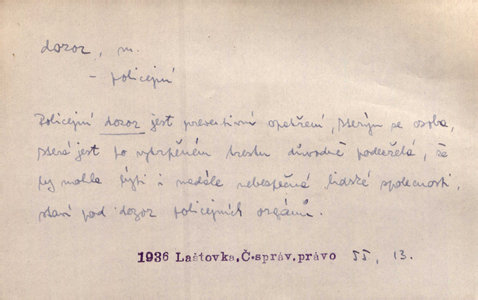 dozor, m.
- policejní
Policejní dozor jest preventivní opatření, kterým se osoba,
která jest po vytrpěném trestu důvodně podezřelá, že
by mohla býti i nadále nebezpečná lidské společnosti,
staví pod dozor policejních orgánů.
1936 Laštovka, Č-správ.právo 55, 13.